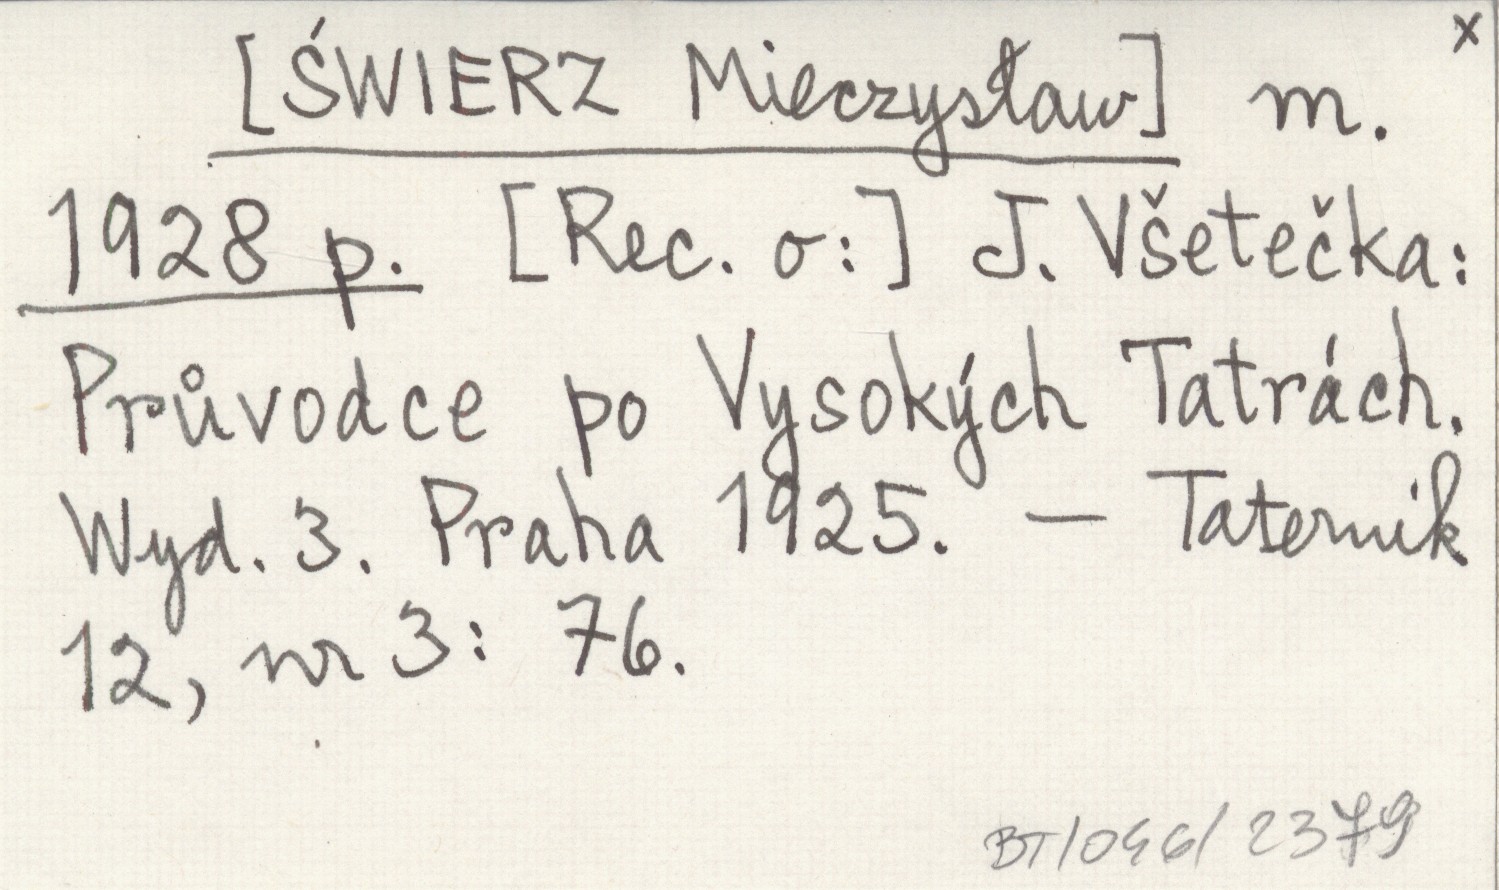 x
[ŚWIERZ Mieczysław] m.
1928 p. [Rec. o:] J. Všetečka:
Průvodce po Vysokých Tatrách.
Wyd. 3. Praha 1925. — Taternik
12, nr 3: 76.
BT/046/2379